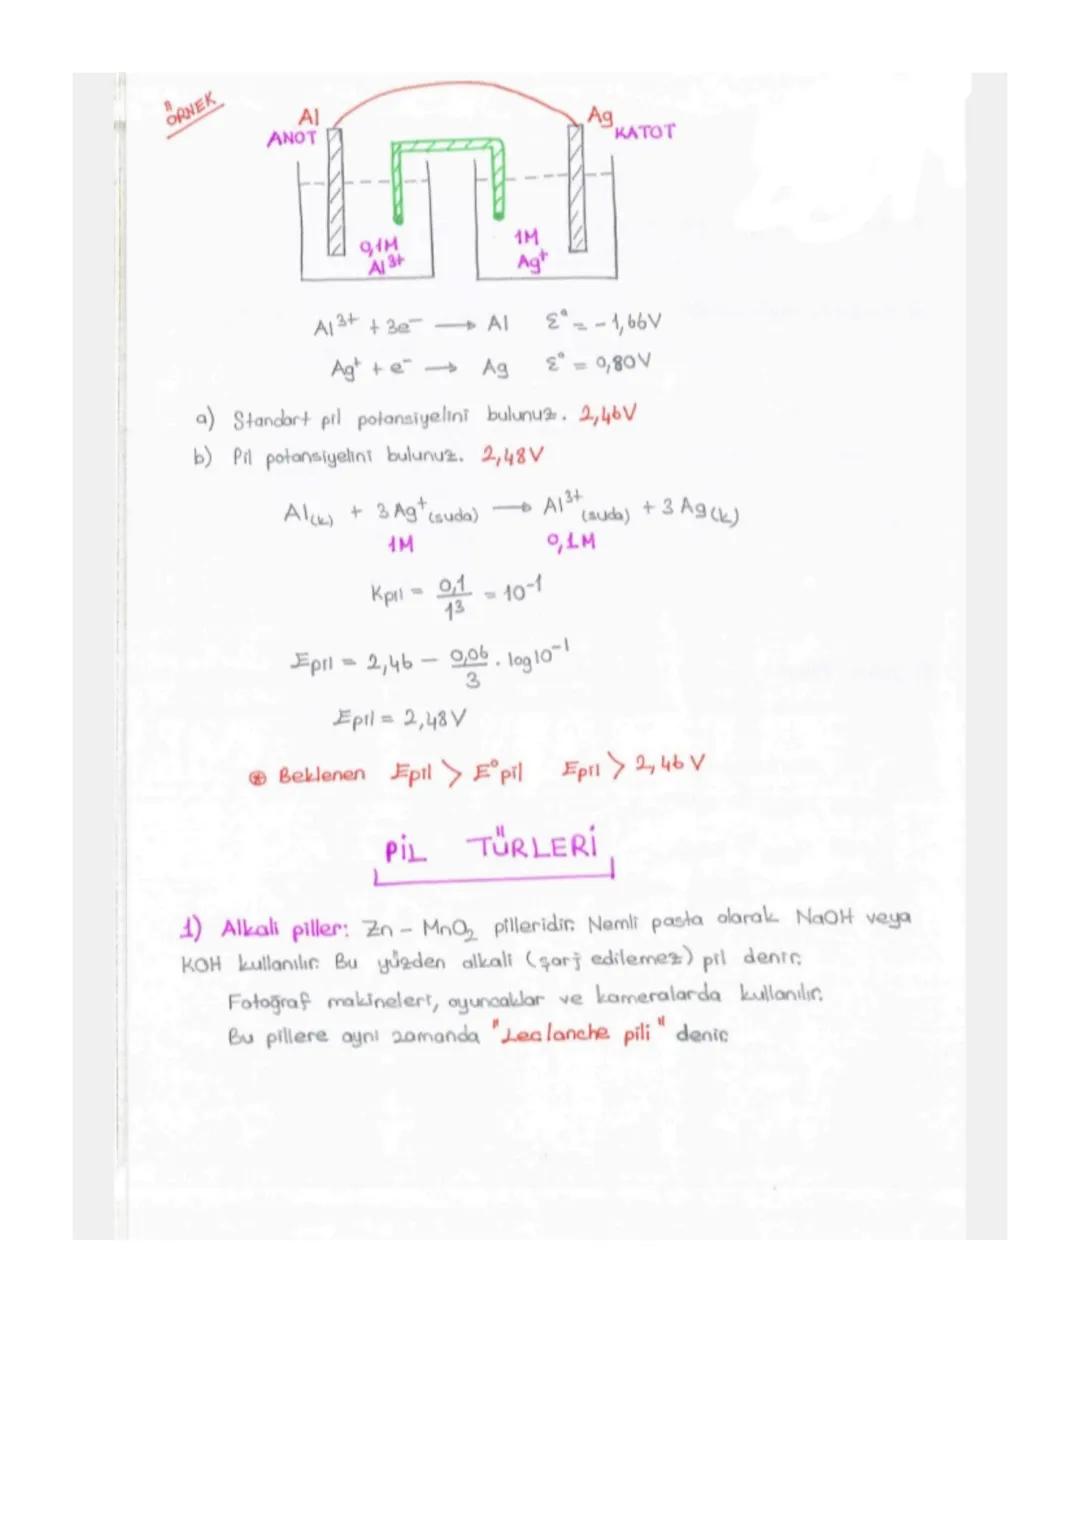 ÖRNEK
Al
ANOT
Ag
KATOT
0,1M
Al3+
1M
Ag+
Al3+ + 3e- → Al   ε° = -1,66V
Ag+ + e- → Ag   ε° = 0,80V
a) Standart pil potansiyelini bulunuz. 2,46V
b) Pil potansiyelini bulunuz. 2,48V
Al(k) + 3 Ag+(suda) → Al3+(suda) + 3 Ag(k)
1M   0,1M
Kpil = 0,1/1³ = 10-1
Epil = 2,46 - 0,06/3 . log10-1
Epil = 2,48V
⊛ Beklenen Epil > E°pil   Epil > 2,46 V
PİL TÜRLERİ
1) Alkali piller: Zn - MnO2 pilleridir. Nemli pasta olarak NaOH veya
KOH kullanılır. Bu yüzden alkali (şarj edilemez) pil denir.
Fotoğraf makineleri, oyuncaklar ve kameralarda kullanılır.
Bu pillere aynı zamanda "Leclanche pili" denir